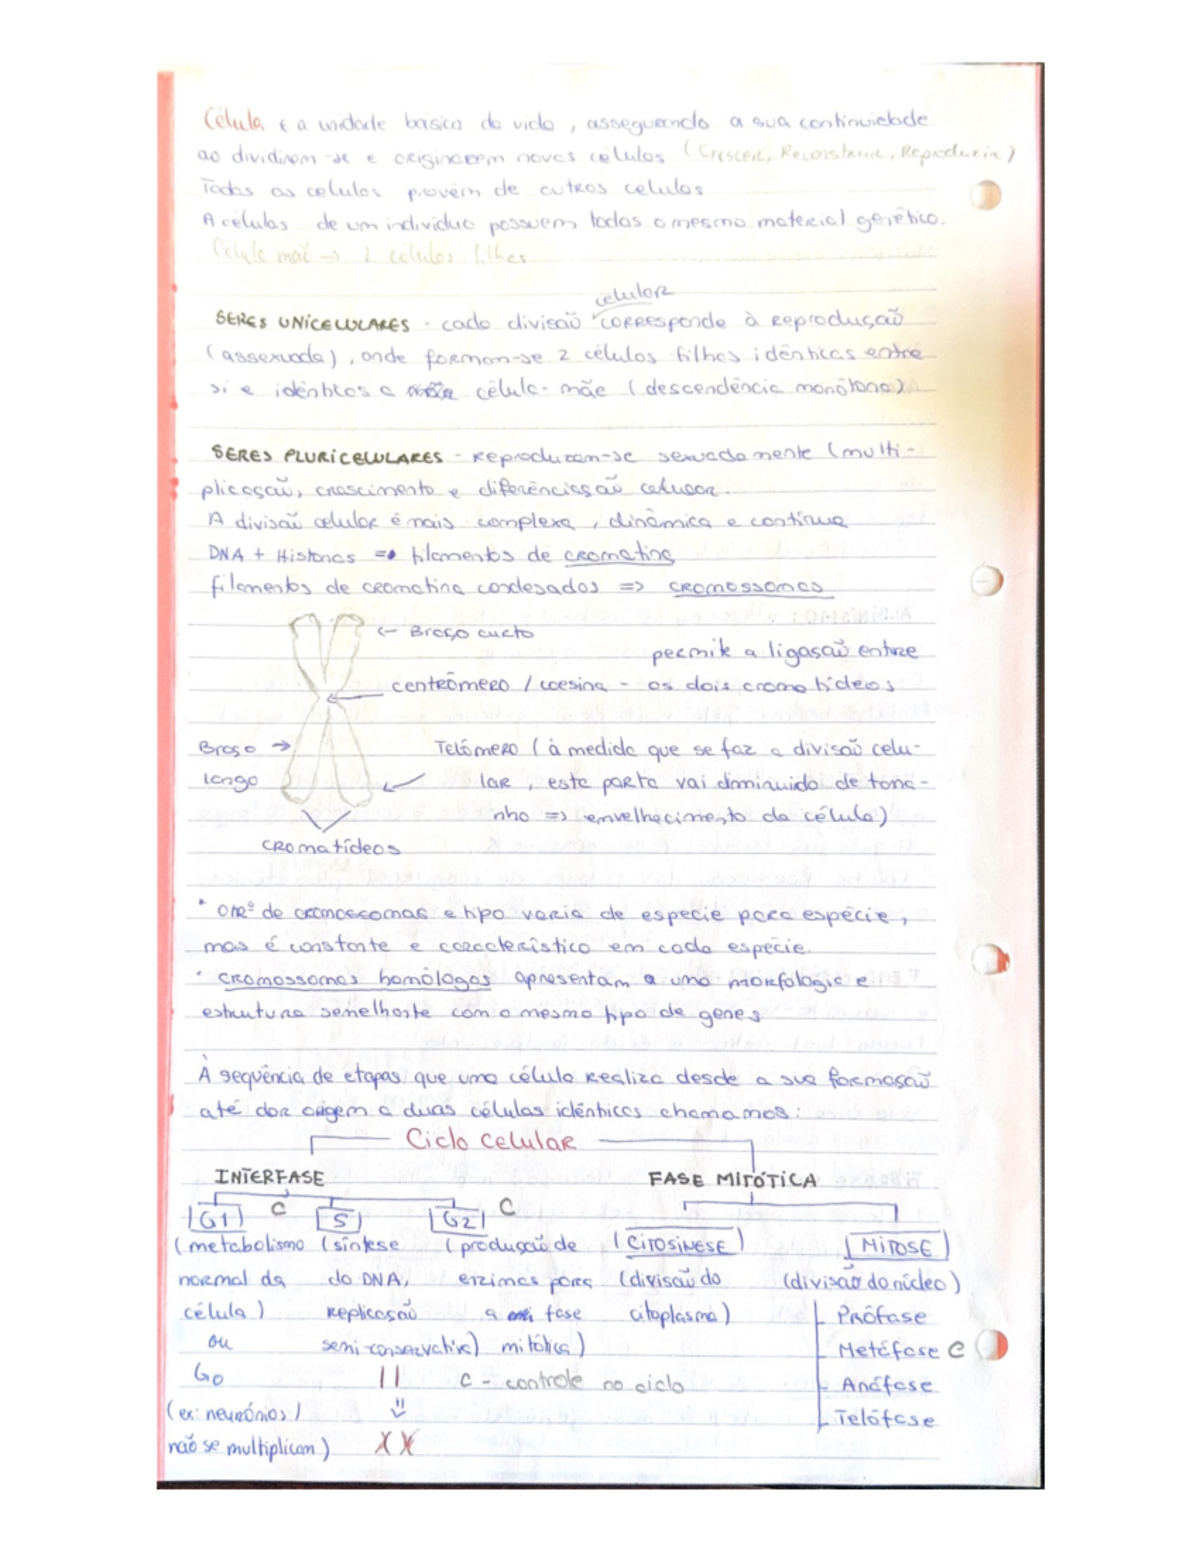 Célula é a unidade básica da vida, assegurando a sua continuidade
ao dividirem-se e originarem novas células (Crescer, Reconstruir, Reproduzir)
Todas as células provêm de outras células
A células de um indivíduo possuem todas o mesmo material genético.
Célula mãe → 2 células filhas
celular
SERES UNICELULARES - cada divisão corresponde à reprodução
(assexuada), onde formam-se 2 células filhas idênticas entre
si e idênticas a célula-mãe (descendência monótona)
SERES PLURICELULARES - Reproduzem-se sexuadamente (multi-
plicação, crescimento e diferênciasão celular.
A divisão celular é mais complexa, dinâmica e contínua
DNA + Histonas => filamentos de cromatina
filamentos de cromatina condesados => cromossomas
<- Braço curto
permite a ligasão entre
centrômero / coesina - os dois cromatídeos
Braço → Telômero (à medida que se faz a divisão celu-
longo lar, esta parte vai diminuido de tama-
nho => envelhecimento da célula)
cromatídeos
* O nrº de cromossomas e tipo varia de especie para espécie,
mas é constante e característico em cada espécie.
* cromossomas homólogos apresentam a uma morfologia e
estrutura semelhante com o mesmo tipo de genes
À sequência de etapas que uma célula realiza desde a sua formasão
até dar origem a duas células idênticas chamamos:
Ciclo Celular
INTERFASE FASE MITÓTICA
G1 C S G2 C
(metabolismo (síntese (produção de (CITOSINESE) MITOSE
normal da do DNA, enzimas para (divisão do (divisão do núcleo)
célula) replicasão a fase citoplasma) Prófase
ou semi-conservativa) mitótica) Metáfase C
G0 C - controle no ciclo Anáfase
(ex: neurónios) Telófase
não se multiplicam)